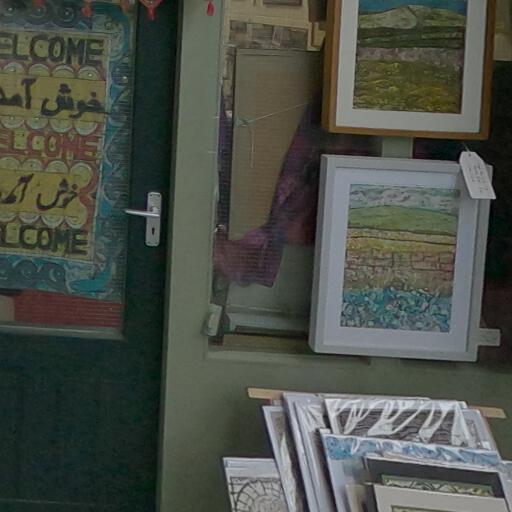 ELCOME
خوش آمد
WELCOME
خوش آمد
LCOME